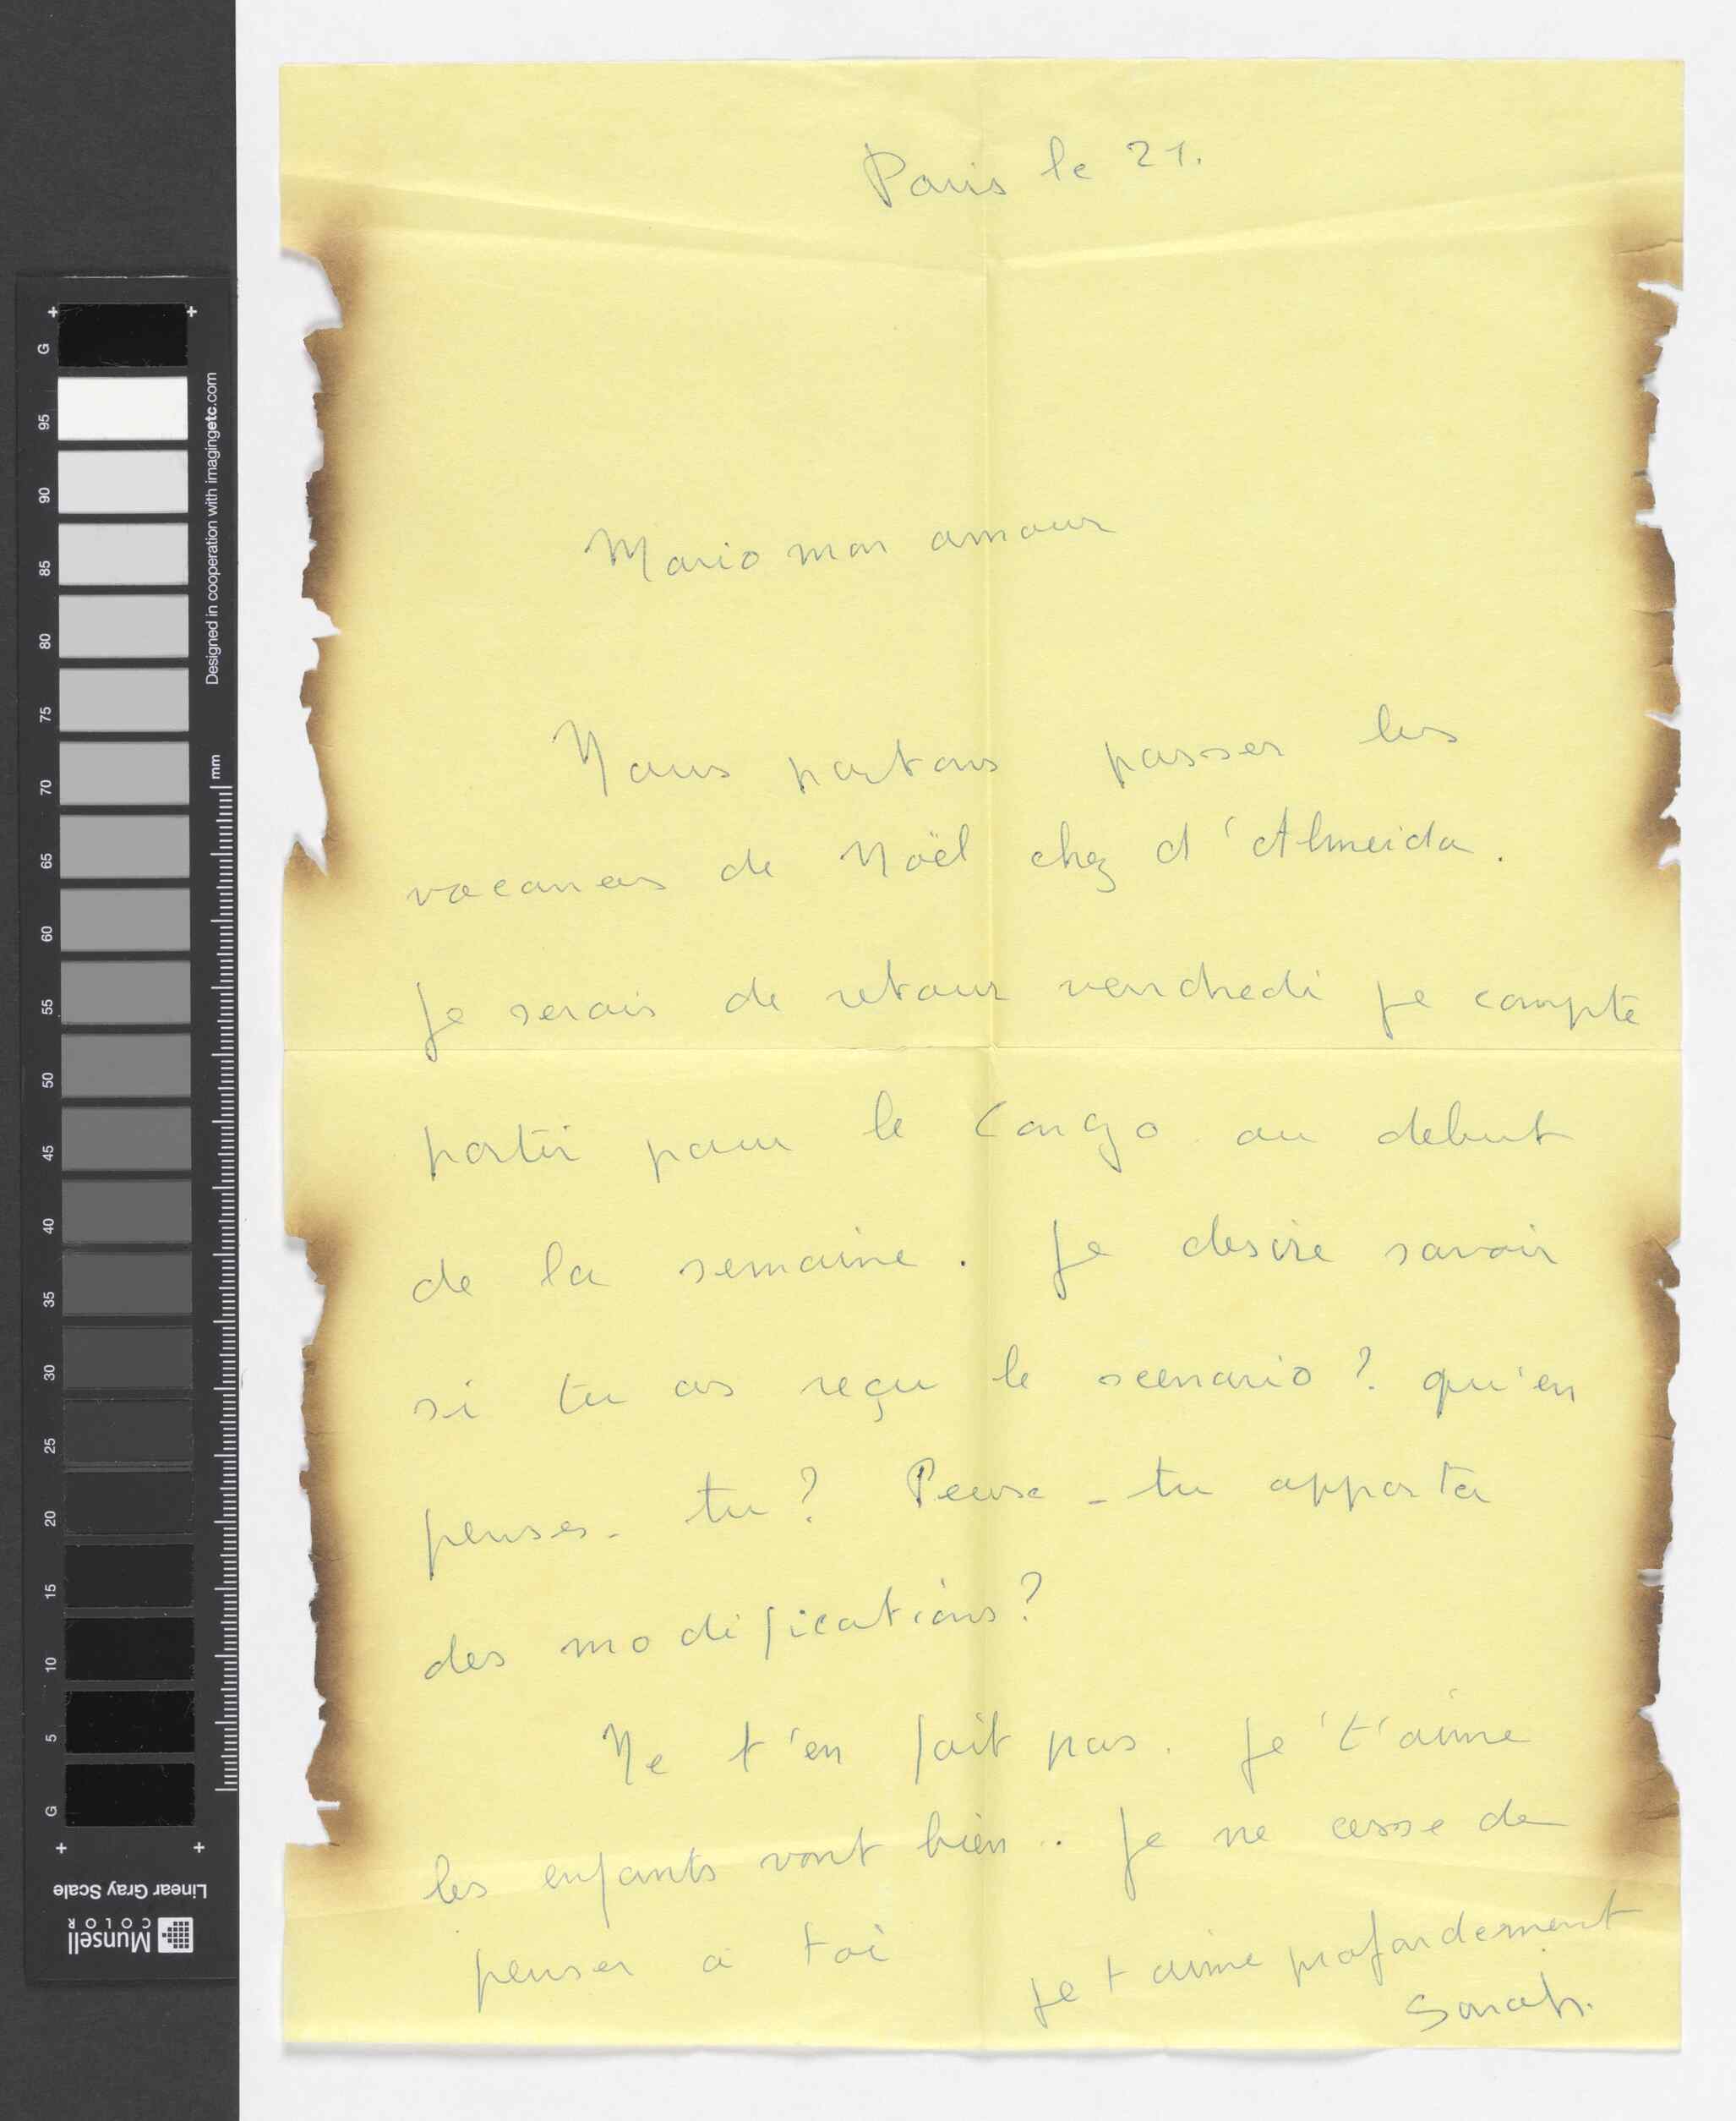 Paris le 21.
Mario mon amour
Nous partons passer les
vacances de Noël chez d'Almeida.
Je serais de retour vendredi je compte
partir pour le Congo au debut
de la semaine. Je desire savoir
si tu as reçu le scenario? qu'en
penses-tu? Pense-tu apporter
des modifications?
Ne t'en fait pas. Je t'aime
les enfants vont bien. Je ne cesse de
penser a toi
je t aime profondement
Sarah.
G 95 90 85 80 75 70 65 60 55 50 45 40 35 30 25 20 15 10 5 G
Designed in cooperation with imagingetc.com
mm
Linear Gray Scale
Munsell
COLOR